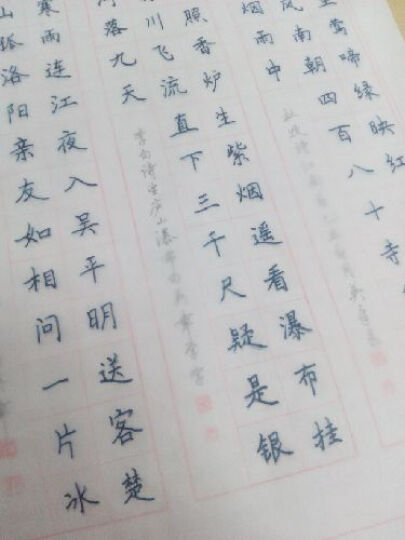 莺啼绿映红
风南朝四百八十寺
烟雨中
杜牧诗江南春
照香炉生紫烟遥看瀑布挂
川飞流直下三千尺疑是银
落九天
李白诗望庐山瀑布
寒雨连江夜入吴平明送客楚
山孤洛阳亲友如相问一片冰